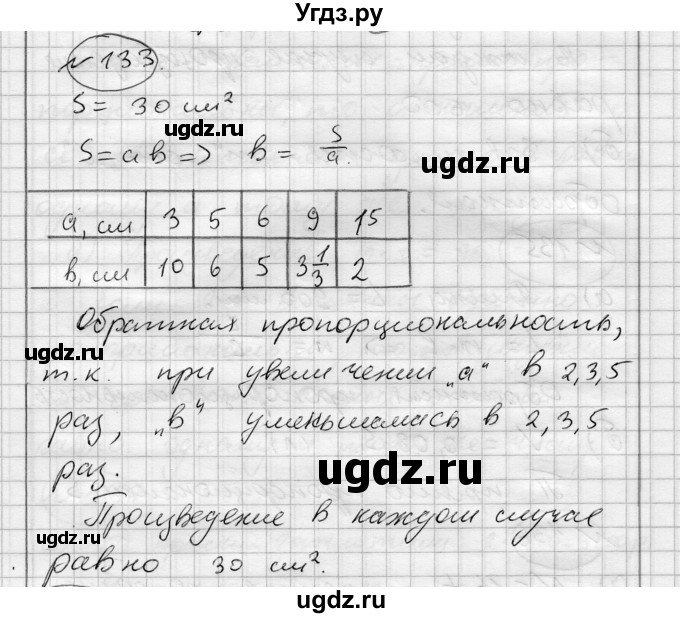 Угдз.ру
№ 133.
S = 30 см²
ugdz.ru
S = ab => b = S/a.
a, см 3 5 6 9 15
b, см 10 6 5 3 1/3 2
Обратная пропорциональность,
ugdz.ru
т.к. при увеличении „a“ в 2,3,5
раз, „в“ уменьшалась в 2,3,5
раз.
ugdz.ru
Произведение в каждом случае
ugdz.ru
равно 30 см².
ugdz.ru